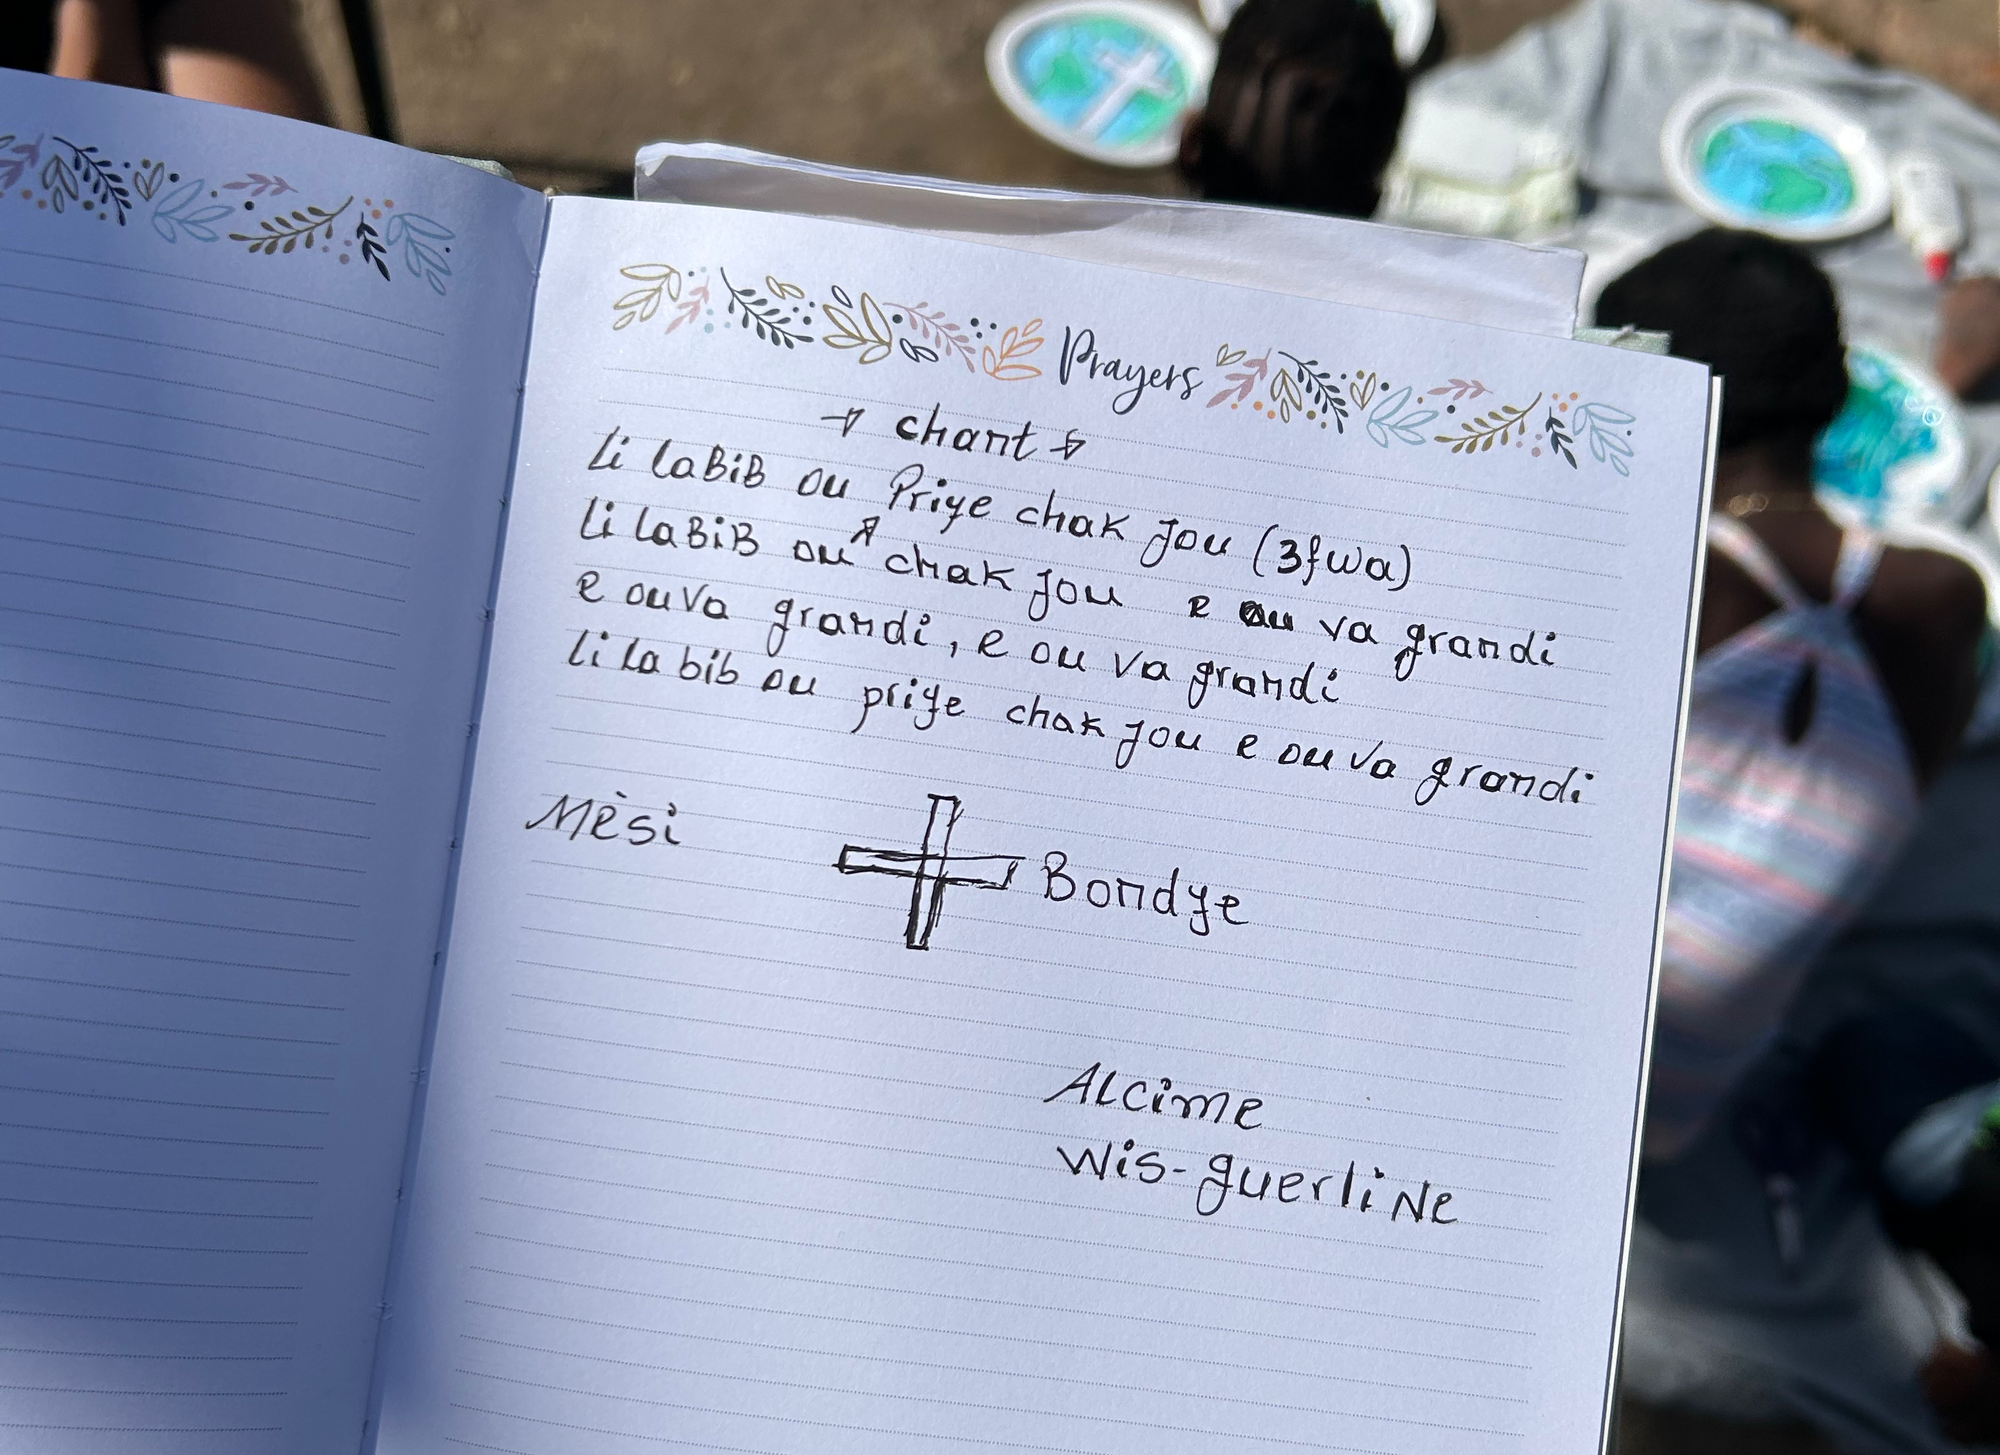 Prayers
chant
Li laBiB ou Priye chak jou (3fwa)
Li laBiB ou chak jou e ou va grandi
e ou va grandi, e ou va grandi
Li la bib ou priye chak jou e ou va grandi
Mèsi Bondye
ALcime
Wis-guerliNe